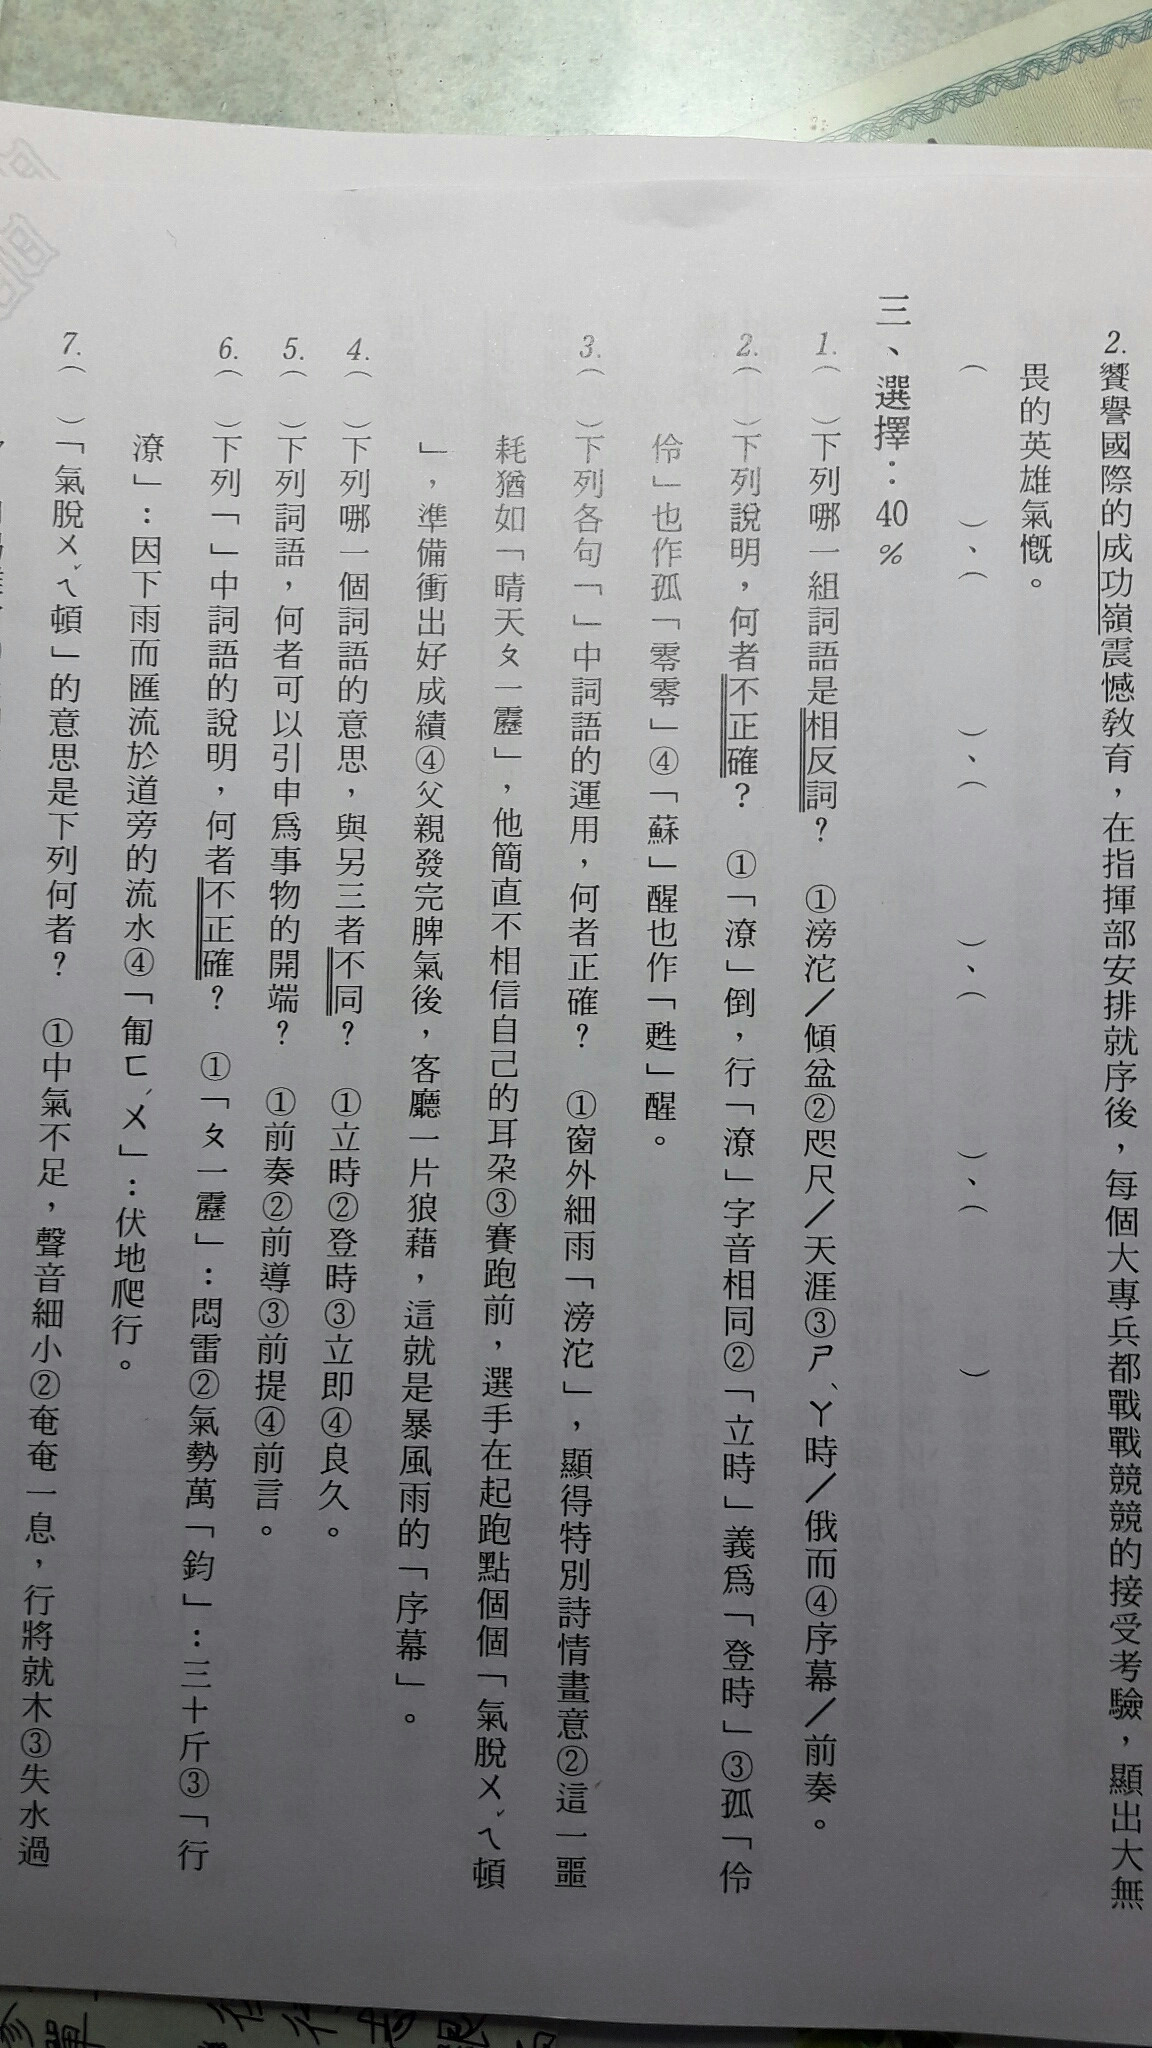 2.饗譽國際的成功嶺震憾教育，在指揮部安排就序後，每個大專兵都戰戰競競的接受考驗，顯出大無
畏的英雄氣慨。
（　　　）、（　　　）、（　　　）、（　　　）、（　　　）
三、選擇：40％
1.（　）下列哪一組詞語是相反詞？　①滂沱／傾盆②咫尺／天涯③ㄕㄚˋ時／俄而④序幕／前奏。
2.（　）下列說明，何者不正確？　①「潦」倒，行「潦」字音相同②「立時」義為「登時」③孤「伶
伶」也作孤「零零」④「蘇」醒也作「甦」醒。
3.（　）下列各句「」中詞語的運用，何者正確？　①窗外細雨「滂沱」，顯得特別詩情畫意②這一噩
耗猶如「晴天ㄆㄧ靂」，他簡直不相信自己的耳朵③賽跑前，選手在起跑點個個「氣脫ㄨㄟˇ頓
」，準備衝出好成績④父親發完脾氣後，客廳一片狼藉，這就是暴風雨的「序幕」。
4.（　）下列哪一個詞語的意思，與另三者不同？　①立時②登時③立即④良久。
5.（　）下列詞語，何者可以引申為事物的開端？　①前奏②前導③前提④前言。
6.（　）下列「」中詞語的說明，何者不正確？　①「ㄆㄧ靂」：悶雷②氣勢萬「鈞」：三十斤③「行
潦」：因下雨而匯流於道旁的流水④「匍ㄈㄨˊ」：伏地爬行。
7.（　）「氣脫ㄨㄟˇ頓」的意思是下列何者？　①中氣不足，聲音細小②奄奄一息，行將就木③失水過